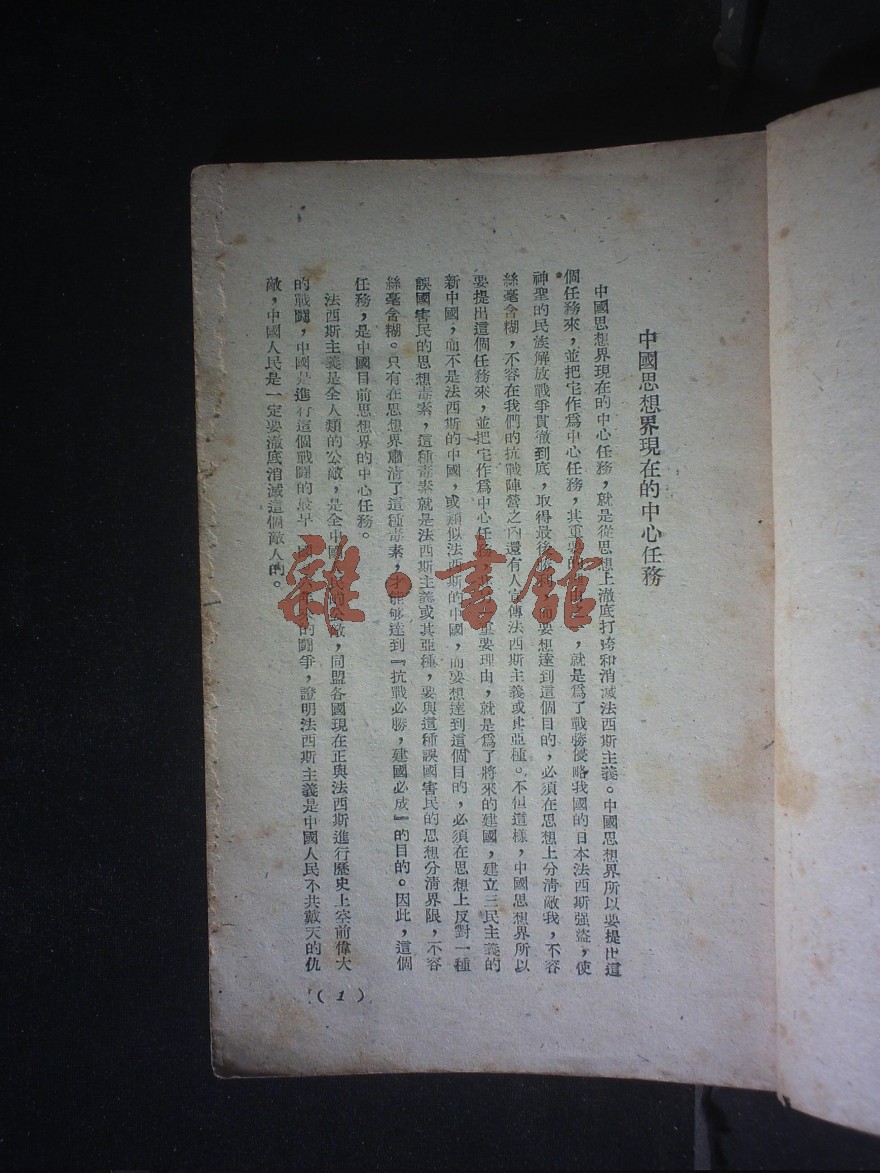 中國思想界現在的中心任務
中國思想界現在的中心任務，就是從思想上澈底打垮和消滅法西斯主義。中國思想界所以要提出這
個任務來，並把它作爲中心任務，其重要的理由之，就是爲了戰勝侵略我國的日本法西斯強盜，使
神聖的民族解放戰爭貫徹到底，取得最後勝利，而要想達到這個目的，必須在思想上分清敵我，不容
絲毫含糊，不容在我們的抗戰陣營之內還有人宣傳法西斯主義或其亞種。不但這樣，中國思想界所以
要提出這個任務來，並把它作爲中心任務，重要理由，就是爲了將來的建國，建立三民主義的
新中國，而不是法西斯的中國，或類似法西斯的中國，而要想達到這個目的，必須在思想上反對一種
誤國害民的思想毒素，這種毒素就是法西斯主義或其亞種，要與這種誤國害民的思想分清界限，不容
絲毫含糊。只有在思想界肅清了這種毒素，才能够達到『抗戰必勝，建國必成』的目的。因此，這個
任務，是中國目前思想界的中心任務。
法西斯主義是全人類的公敵，是全中國人民的公敵，同盟各國現在正與法西斯進行歷史上空前偉大
的戰鬪，中國是進行這個戰鬪的最早一國，的鬪爭，證明法西斯主義是中國人民不共戴天的仇
敵，中國人民是一定要澈底消滅這個敵人的。
（1）
雜·書館